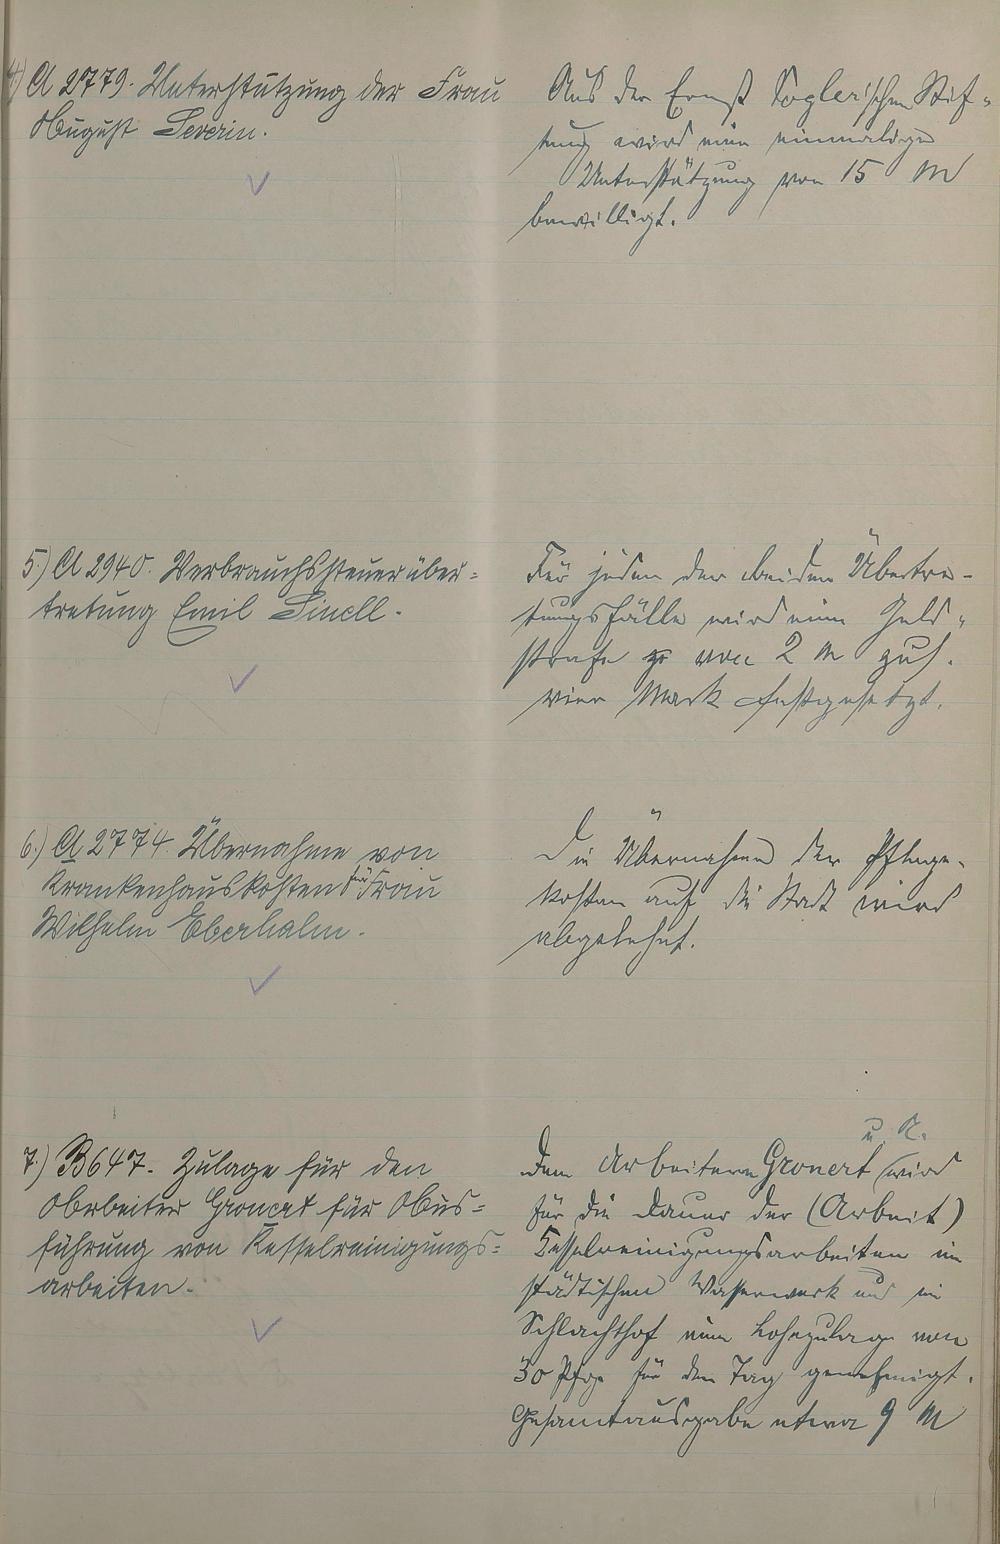 4.) A 2779. Unterstützung der Frau
August Severin.
Aus der Ernst Vogler'schen Stif-
tung wird eine einmalige
Unterstützung von 15 M
bewilligt.
5.) A 2940. Verbrauchssteuerüber-
tretung Emil Sinell.
Für jeden der beiden Übertre-
tungsfälle wird eine Geld-
strafe von 2 M zus.
vier Mark festgesetzt.
6.) A 2774. Übernahme von
Krankenhauskosten für Frau
Wilhelm Eberhalm.
Die Übernahme der Pflege-
kosten auf die Stadt wird
abgelehnt.
7.) B 647. Zulage für den
Arbeiter Gronert für Aus-
führung von Kesselreinigungs-
arbeiten.
u. K.
Dem Arbeitern Gronert wird
für die Dauer der (Arbeit)
Kesselreinigungsarbeiten im
städtischen Wasserwerk und im
Schlachthof eine Lohnzulage von
30 Pfge für den Tag genehmigt.
Gesamtausgabe etwa 9 M